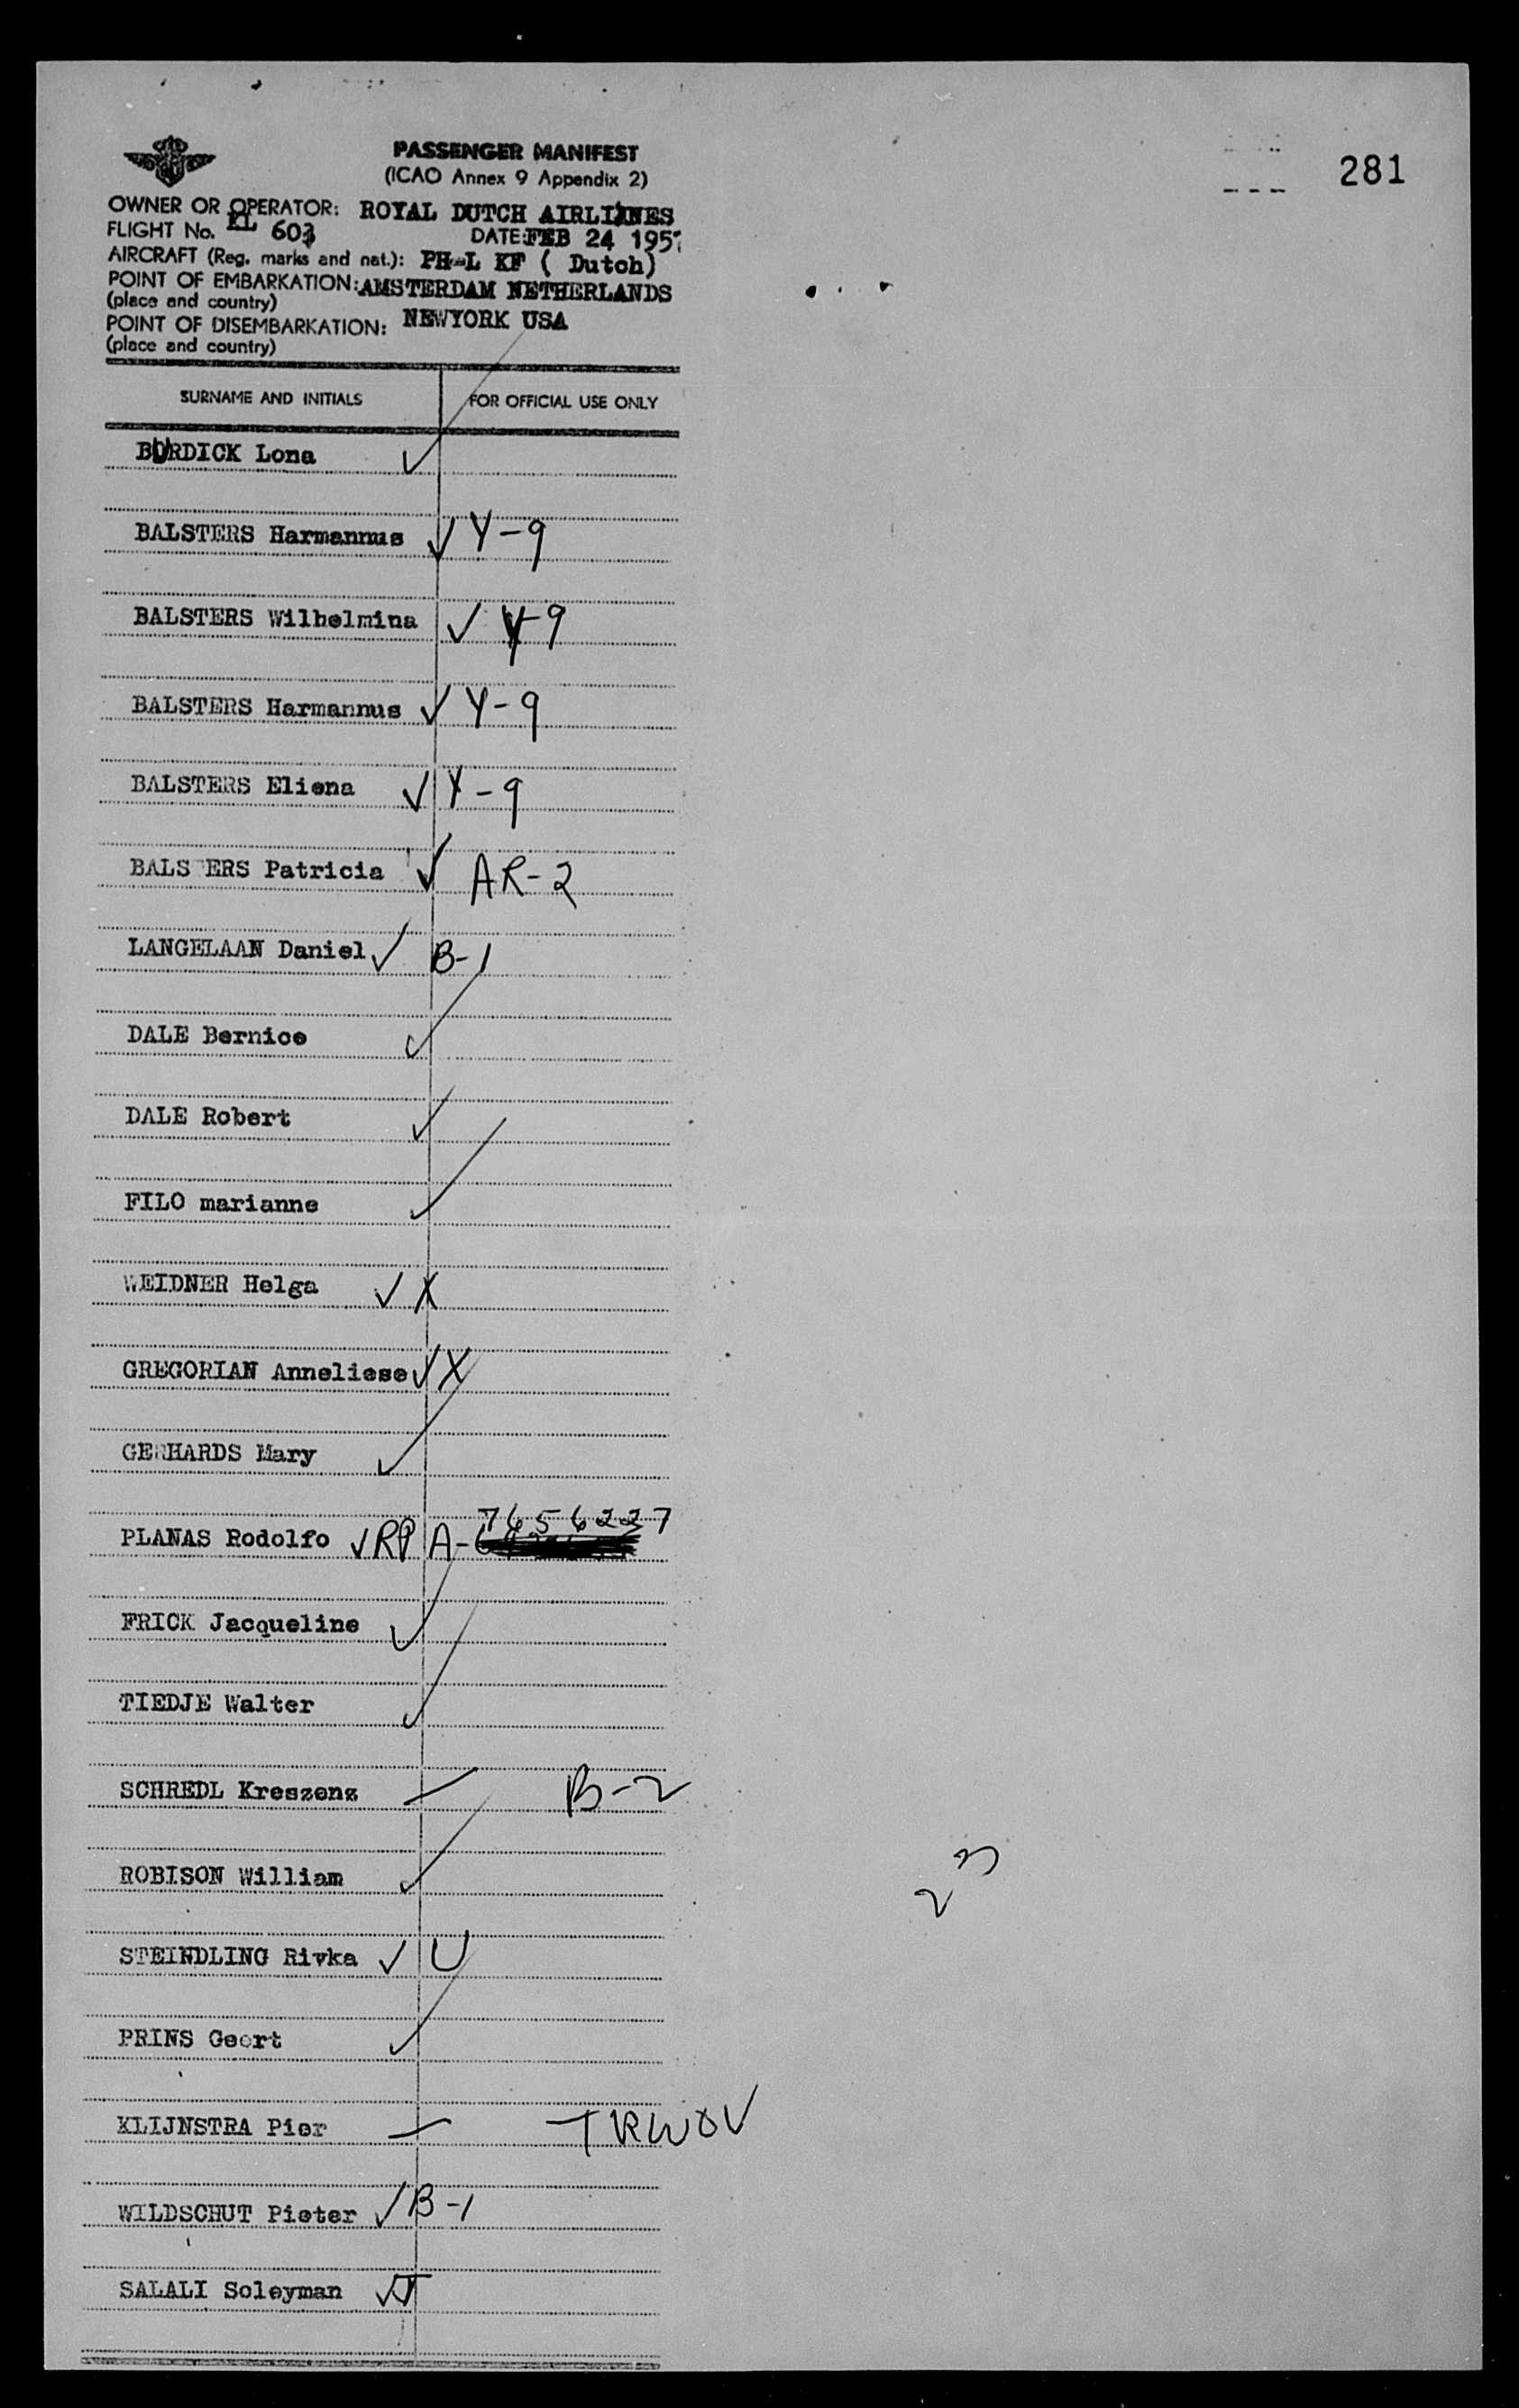 281
PASSENGER MANIFEST
(ICAO Annex 9 Appendix 2)
OWNER OR OPERATOR: ROYAL DUTCH AIRLINES
FLIGHT No. KL 603 DATE: FEB 24 1957
AIRCRAFT (Reg. marks and nat.): PH-L KF ( Dutch)
POINT OF EMBARKATION: AMSTERDAM NETHERLANDS
(place and country)
POINT OF DISEMBARKATION: NEWYORK USA
(place and country)
SURNAME AND INITIALS FOR OFFICIAL USE ONLY
BURDICK Lona ✓
BALSTERS Harmannus ✓ Y-9
BALSTERS Wilhelmina ✓ Y-9
BALSTERS Harmannus ✓ Y-9
BALSTERS Eliena ✓ Y-9
BALSTERS Patricia ✓ AR-2
LANGELAAN Daniel ✓ B-1
DALE Bernice ✓
DALE Robert ✓
FILO marianne ✓
WEIDNER Helga ✓ X
GREGORIAN Anneliese ✓ X
GERHARDS Mary ✓
PLANAS Rodolfo ✓ RP A-7656227
FRICK Jacqueline ✓
TIEDJE Walter ✓
SCHREDL Kreszenz B-2
ROBISON William ✓
23
STEINDLING Rivka ✓ U
PRINS Geert ✓
KLIJNSTRA Pier TRWOV
WILDSCHUT Pieter ✓ B-1
SALALI Soleyman ✓